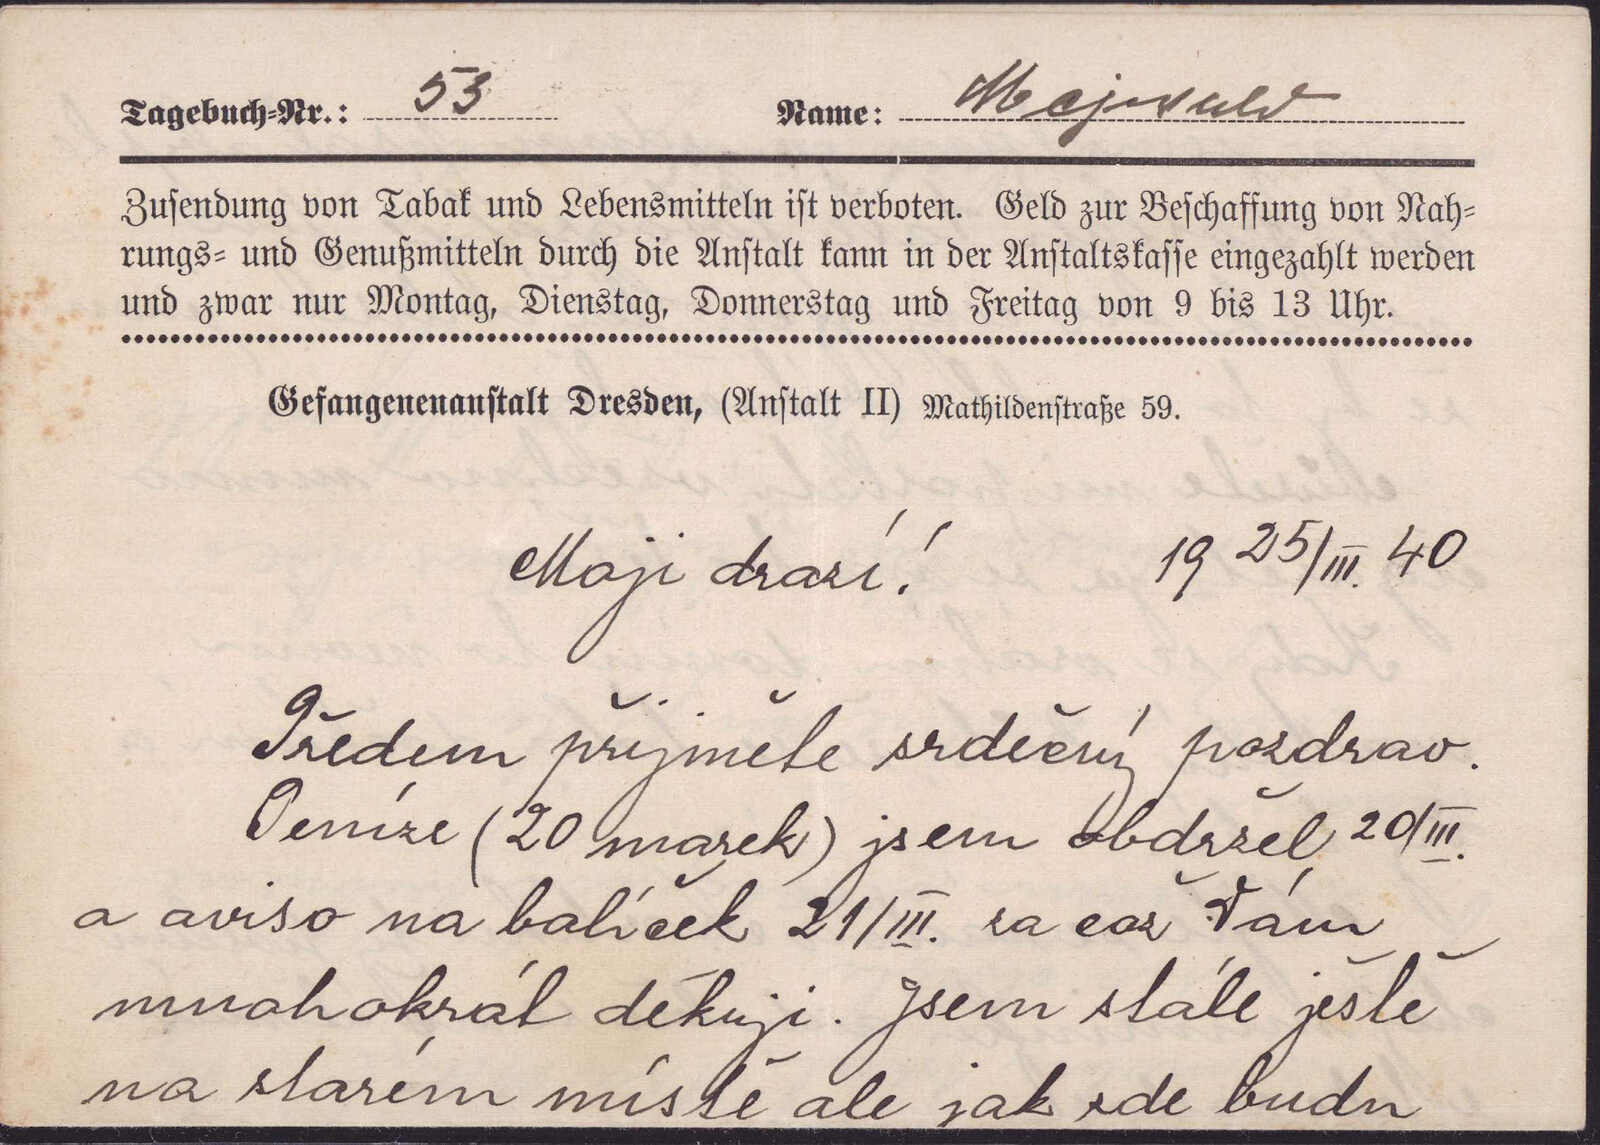 Tagebuch-Nr.: 53 Name: Mejwald
Zusendung von Tabak und Lebensmitteln ist verboten. Geld zur Beschaffung von Nah-
rungs- und Genußmitteln durch die Anstalt kann in der Anstaltskasse eingezahlt werden
und zwar nur Montag, Dienstag, Donnerstag und Freitag von 9 bis 13 Uhr.
Gefangenenanstalt Dresden, (Anstalt II) Mathildenstraße 59.
Moji drazí! 19 25/III. 40
Předem přijměte srdečný pozdrav.
Peníze (20 marek) jsem obdržel 20/III.
a aviso na balíček 21/III. za což Vám
mnohokrát děkuji. Jsem stále ještě
na starém místě ale jak zde budu